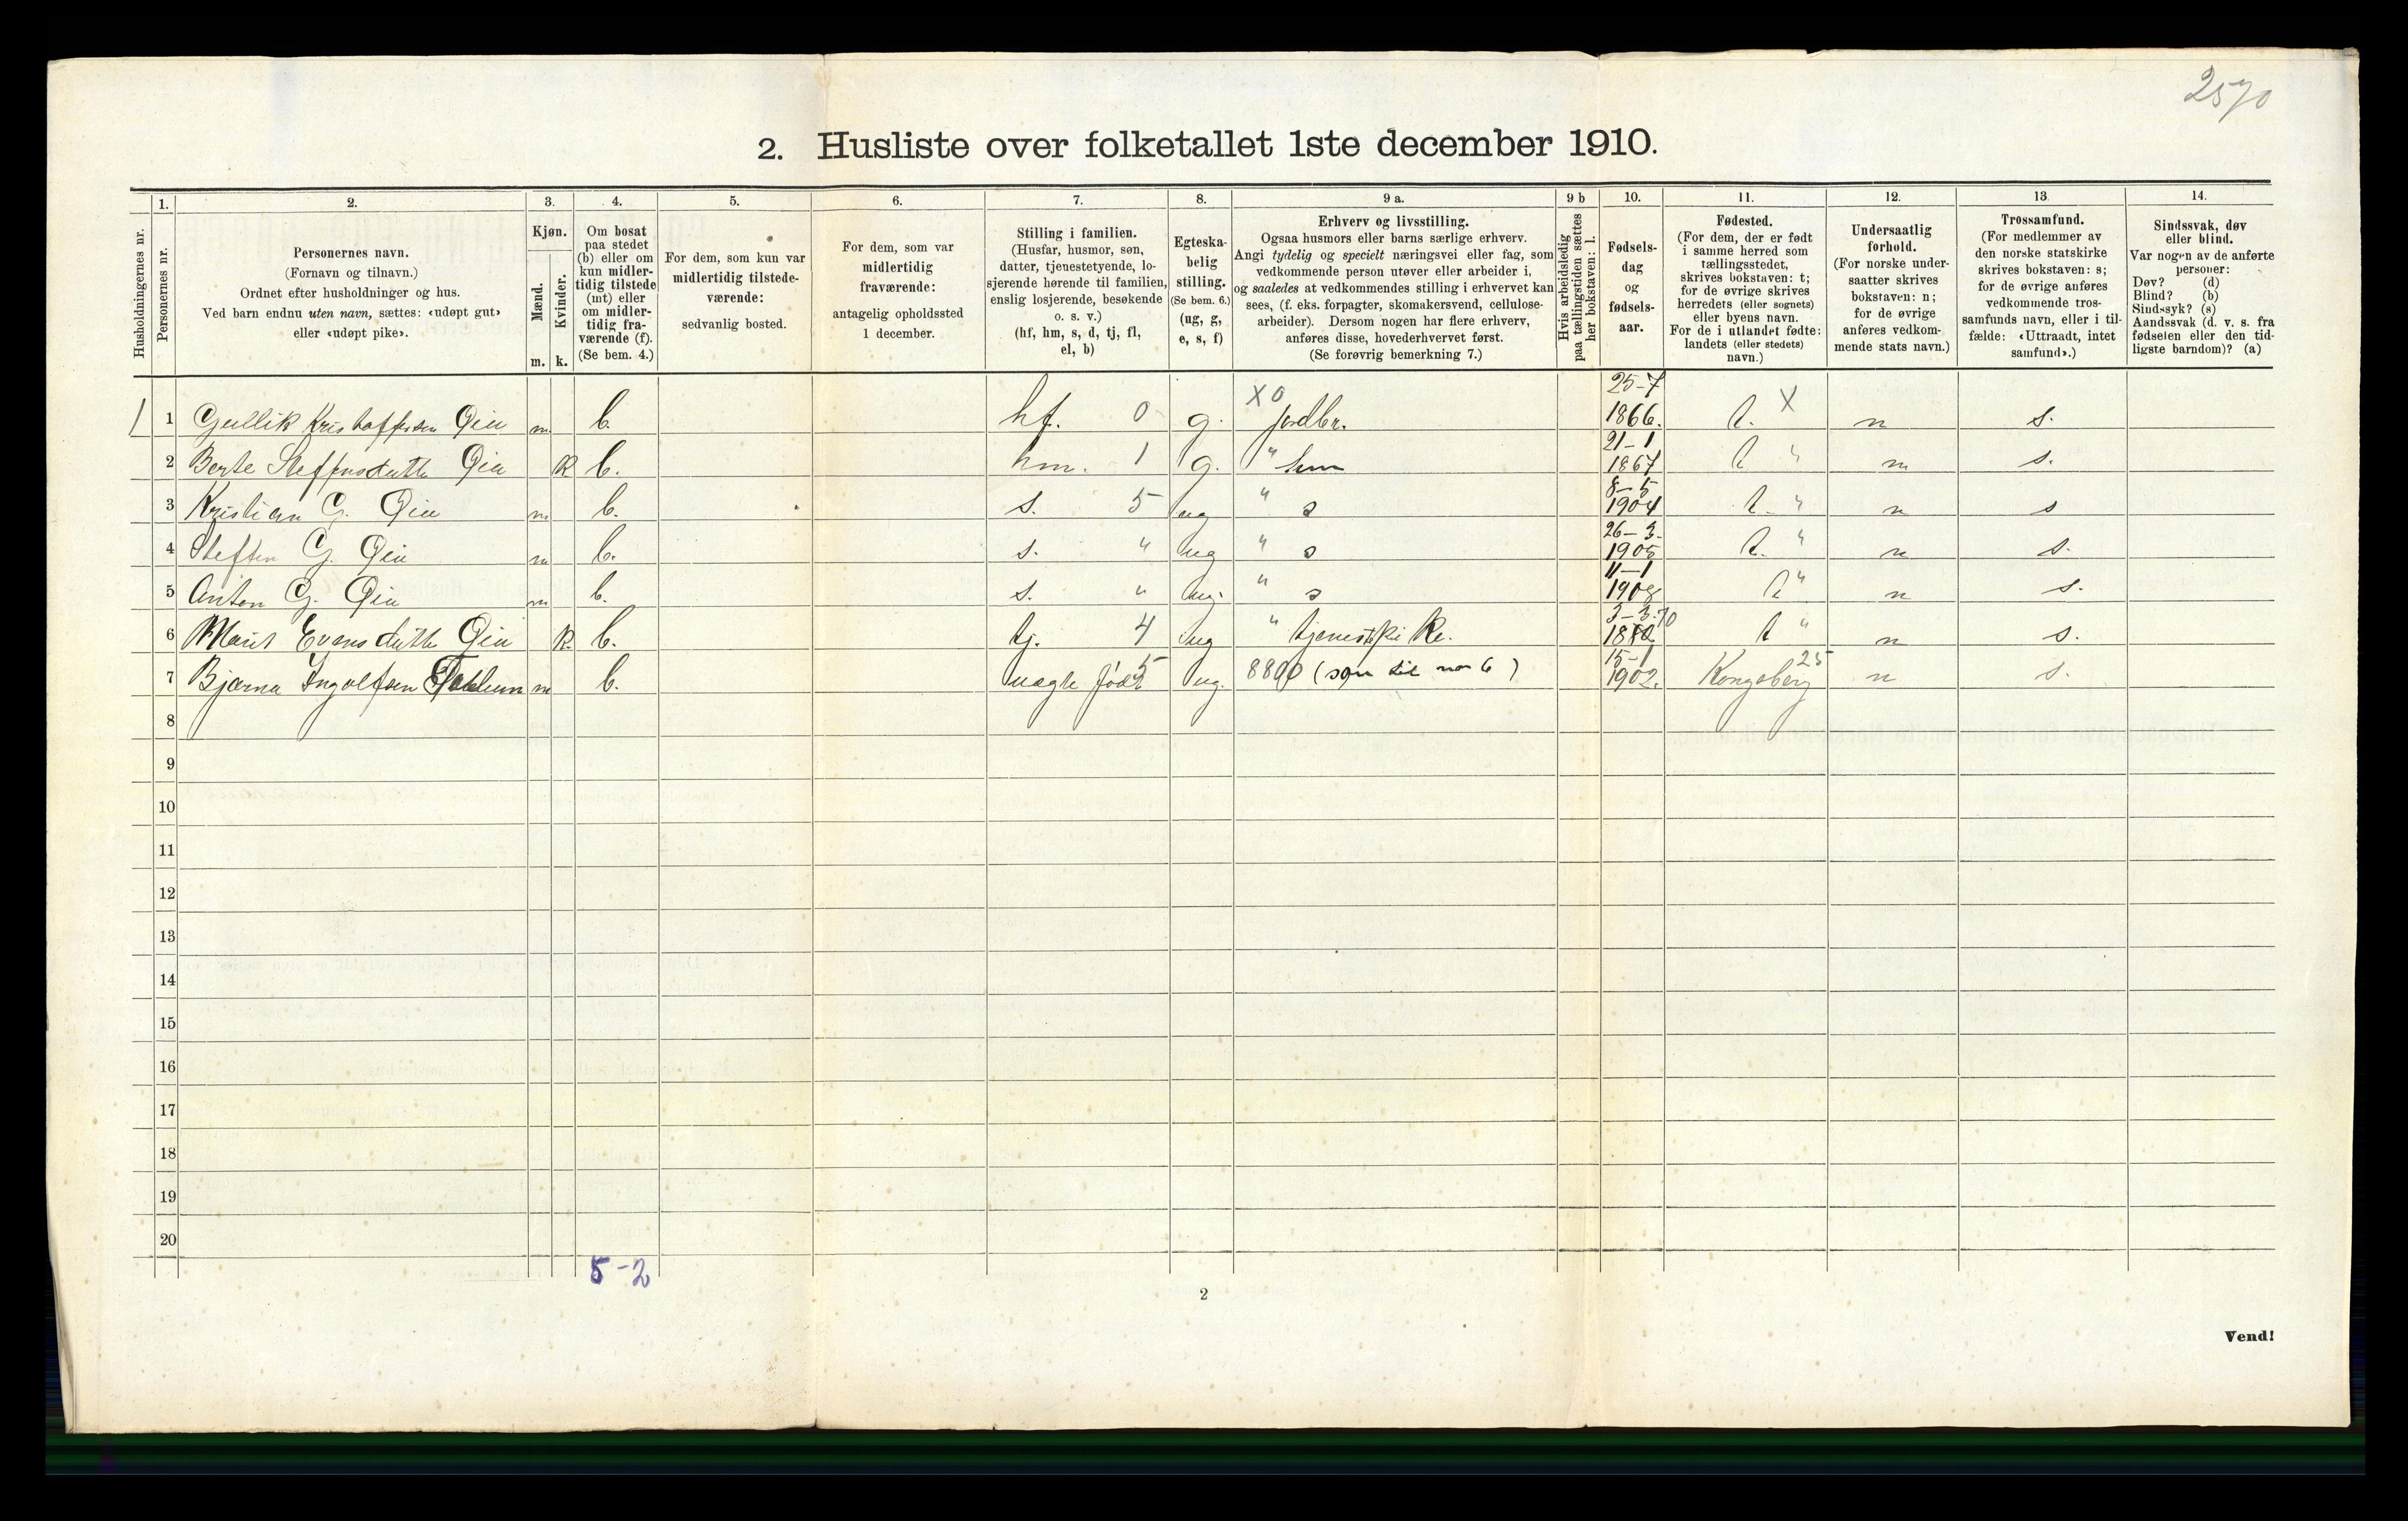 2570
2. Husliste over folketallet 1ste december 1910.
Husholdningernes nr.
1.
Personernes nr.
2.
Personernes navn.
(Fornavn og tilnavn.)
Ordnet efter husholdninger og hus.
Ved barn endnu uten navn, sættes: «udøpt gut»
eller «udøpt pike».
3.
Kjøn.
Mænd.
Kvinder.
m. k.
4.
Om bosat
paa stedet
(b) eller om
kun midler-
tidig tilstede
(mt) eller
om midler-
tidig fra-
værende (f).
(Se bem. 4.)
5.
For dem, som kun var
midlertidig tilstede-
værende:
sedvanlig bosted.
6.
For dem, som var
midlertidig
fraværende:
antagelig opholdssted
1 december.
7.
Stilling i familien.
(Husfar, husmor, søn,
datter, tjenestetyende, lo-
sjerende hørende til familien,
enslig losjerende, besøkende
o. s. v.)
(hf, hm, s, d, tj, fl,
el, b)
8.
Egteska-
belig
stilling.
(Se bem. 6.)
(ug, g,
e, s, f)
9 a.
Erhverv og livsstilling.
Ogsaa husmors eller barns særlige erhverv.
Angi tydelig og specielt næringsvei eller fag, som
vedkommende person utøver eller arbeider i,
og saaledes at vedkommendes stilling i erhvervet kan
sees, (f. eks. forpagter, skomakersvend, cellulose-
arbeider). Dersom nogen har flere erhverv,
anføres disse, hovederhvervet først.
(Se forøvrig bemerkning 7.)
9 b
Hvis arbeidsledig
paa tællingstiden sættes
her bokstaven: l.
10.
Fødsels-
dag
og
fødsels-
aar.
11.
Fødested.
(For dem, der er født
i samme herred som
tællingsstedet,
skrives bokstaven: t;
for de øvrige skrives
herredets (eller sognets)
eller byens navn.
For de i utlandet fødte:
landets (eller stedets)
navn.)
12.
Undersaatlig
forhold.
(For norske under-
saatter skrives
bokstaven: n;
for de øvrige
anføres vedkom-
mende stats navn.)
13
Trossamfund.
(For medlemmer av
den norske statskirke
skrives bokstaven: s;
for de øvrige anføres
vedkommende tros-
samfunds navn, eller i til-
fælde: «Uttraadt, intet
samfund».)
14.
Sindssvak, døv
eller blind.
Var nogen av de anførte
personer:
Døv? (d)
Blind? (b)
Sindssyk? (s)
Aandssvak (d. v. s. fra
fødselen eller den tid-
ligste barndom)? (a)
1 1 Gullik Kristoffersen m b. hf. 0 g. X0 Jordbr. 25-7 1866. t. X n s.
2 Berte k b. hm. 1 g. " 21-1 1867 t " n s.
3 Kristian G. m b. s. 5 ug " s 8-5 1904 t. " n s
4 Steffen G. m b. s. " ug " s 26-3. 1905 t. " n s.
5 Anton G. m b. s. " ug. " s 11-1 1908 t " n s.
6 Marit k. b. tj. 4 ug " 3-3. t " n s.
7 Bjarne Ingolfsen m b. 5 ug. 8800 (søn til no 6) 15-1 1902. Kongsberg 25 n s.
8
9
10
11
12
13
14
15
16
17
18
19
20
5-2
2
Vend!